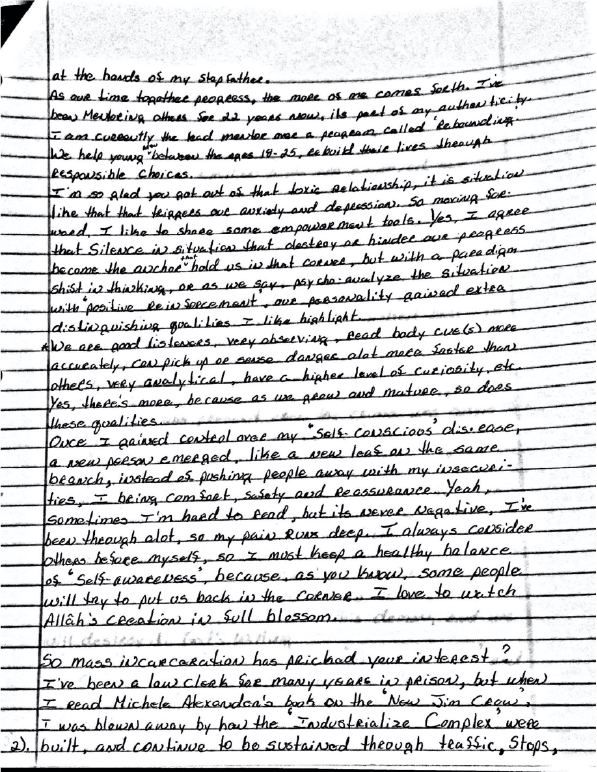 at the hands of my stepfather.
As our time together progress, the more of me comes forth. I've
been Mentoring others for 22 years now, its part of my authenticity.
I am currently the lead mentor over a program called "Rebounding"
We help young men between the ages 18-25, rebuild their lives through
Responsible Choices.
I'm so glad you got out of that toxic relationship, it is situation
like that that triggers our anxiety and depression. So moving for-
ward, I like to share some empowerment tools. Yes, I agree
that Silence in situation that destroy or hinder our progress
become the anchor that hold us in that corner, but with a paradigm
shift in thinking, or as we say, psycho-analyze the situation
with "positive Reinforcement", our personality gained extra
distinguishing qualities I like highlight.
*We are good listeners, very observing, read body cue(s) more
accurately, can pick up or sense danger alot more faster than
others, very analytical, have a higher level of curiosity, etc.
Yes, there's more, because as we grow and mature, so does
these qualities.
Once I gained control over my "Self-Conscious" dis.ease,
a new person emerged, like a new leaf on the same
branch, instead of pushing people away with my insecuri-
ties, I bring comfort, safety and Reassurance. Yeah,
sometimes I'm hard to read, but its never negative, I've
been through alot, so my pain runs deep. I always consider
others before myself, so I must keep a healthy balance
of "Self-awareness", because, as you know, some people
will try to put us back in the corner. I love to watch
Allâh's creation in full blossom.
So mass incarcaration has pricked your interest?
I've been a law clerk for many years in prison, but when
I read Michele Alexander's book on the "New Jim Crow",
I was blown away by how the "Industrialize Complex" were
2). built, and continue to be sustained through traffic, stops,